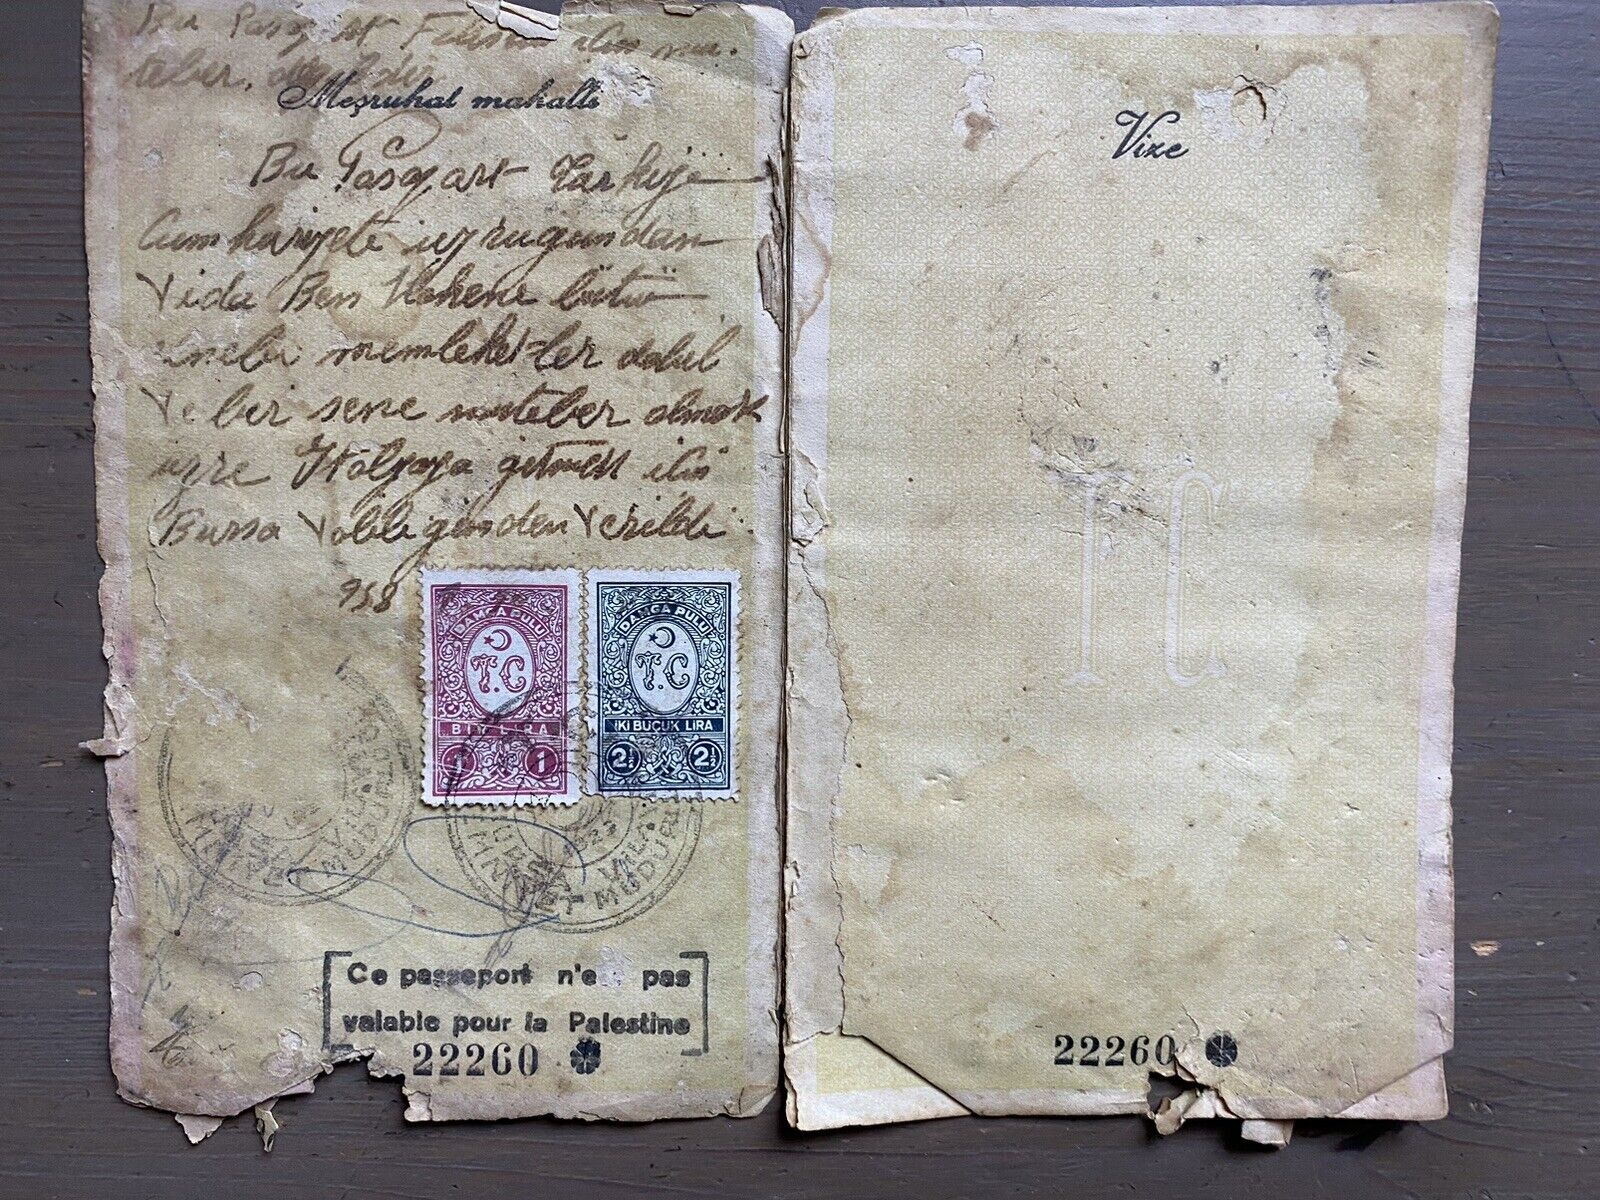 Bu Pasaport Filistin için mu-
teber, değildir
Meşruhat mahalli
Bu Pasaport Türkiye
Cumhuriyeti uyruğundan
Vida Ben bütün
Ecnebi memleketler dahil
Ve bir sene muteber olmak
üzre İtalyaya gitmek için
Bursa Valiliğinden Verildi
958
DAMGA PULU
T.C
BİR LİRA
1
DAMGA PULU
T.C
İKİ BUÇUK LİRA
2½ 2½
VİLAYETİ
EMNİYET MÜDÜRLÜĞÜ
Ce passeport n'e pas
valable pour la Palestine
22260
Vize
TC
22260